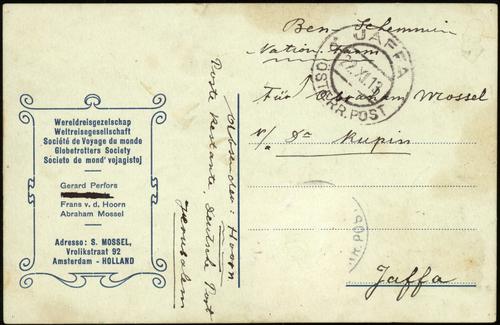 Wereldreisgezelschap
Weltreisegesellschaft
Société de Voyage du monde
Globetrotters Society
Societo de mond' vojagistoj
Gerard Perfors
Frans v. d. Hoorn
Abraham Mossel
Adresso: S. MOSSEL,
Vrolikstraat 92
Amsterdam - HOLLAND
Absender: Hoorn
Poste Restante, Deutsche Post
Jerusalem
Ben Schemmin
JAFFA
22.XII.13
ÖST.
ERR. POST
Für Abraham Mossel
Dr Rupin
Jaffa